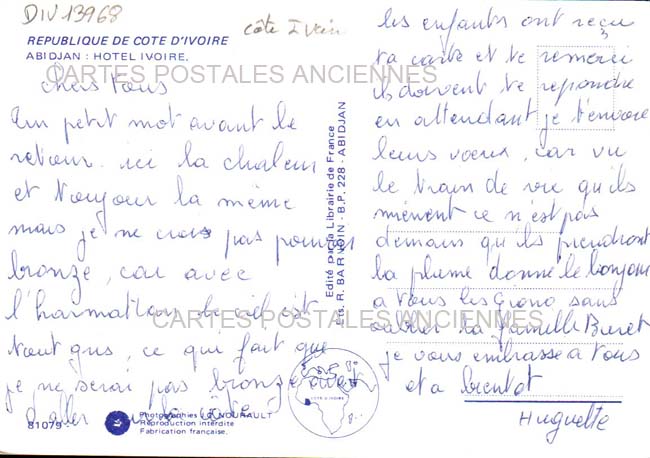 DIV 13968
côte Ivoir
REPUBLIQUE DE COTE D'IVOIRE
ABIDJAN : HOTEL IVOIRE.
CARTES POSTALES ANCIENNES
chers tous
Un petit mot avant le
retour. ici la chaleur
est toujour la même
mais je ne crois pas pouvoir
bronze, car avec
l'harmattan le ciel est
tout gris, ce qui fait que
je ne serai pas bronzé avant
d'aller sur la côte
81079
Photographies J.C. NOURAULT
Reproduction interdite
Fabrication française.
Edité par la Librairie de France
Ets. R. BARVOIN - B.P. 228 - ABIDJAN
COTE D'IVOIRE
les enfants ont reçu
ta carte et te remerci
ils doivent te repondre
en attendant je t'envoie
leurs voeux, car vu
le train de vie qu'ils
mènent ce n'est pas
demain qu'ils prendront
la plume donne le bonjour
a tous les sans
CARTES POSTALES ANCIENNES
oublier la famille
je vous embrasse a tous
et a bientot
Huguette